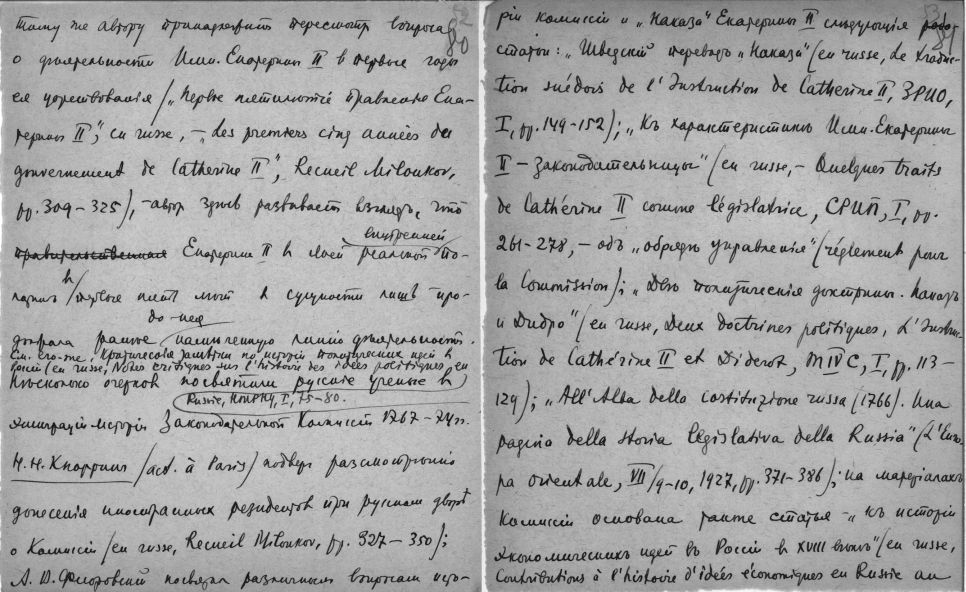 Тому же автору принадлежит пересмотр вопроса
о деятельности Имп. Екатерины II в первые годы
ея царствования /„Первое пятилетие правления Ека-
терины II", en russe, – Les premiers cinq années du
gouvernement de Catherine II", Recueil Miloukov,
pp. 309–325/, – автор здесь развивает взгляд, что
Екатерина II в своей реальной внутренней по-
литике в первые пять лет в сущности лишь про-
должала ранее до нея намеченную линию деятельности.
См. его-же, Критическія заметки по исторіи политических идей в
Россіи (en russe, Notes critiques sur l'histoire des idées politiques en
Russie, НПРНУ, I, 75–80.
Несколько очерков посвятили русские ученые в
эмиграціи исторіи Законодательной Комиссіи 1767–74 гг.
Н.Н. Кнорринг /act. à Paris/ подверг разсмотрению
донесения иностранных резидентов при русском дворе
о Комиссіи /en russe, Recueil Miloukov, pp. 327–350/;
А.В. Флоровский посвятил различным вопросам исто-
80
ріи Комиссіи и „Наказа" Екатерины II следующія
статьи: „Шведскій перевод „Наказа" (en russe, Le traduc-
tion suédois de l'Instruction de Catherine II, ЗРИО,
I, pp. 149–152); „Къ характеристике Имп. Екатерины
II – Законодательницы" (en russe, – Quelques traits
de Cathérine II comme législatrice, СРИП, I, pp.
261–278, – об „обряде управления" (réglement pour
la Commission); „Две политическія доктрины. Наказ
и Дидро" (en russe, Deux doctrines politiques, L'Instruc-
tion de Cathérine II et Diderot, MIVC, I, pp. 113–
129); „All'Alba della costituzione russa (1766). Una
pagina della storia législativa della Russia" (L'Euro-
pa orientale, VII/9–10, 1927, pp. 371–386); на матеріалах
Комиссіи основана также статья – „Къ исторіи
экономических идей въ Россіи в XVIII веке" (en russe,
Contributions à l'histoire d'idées économiques en Russie au
81